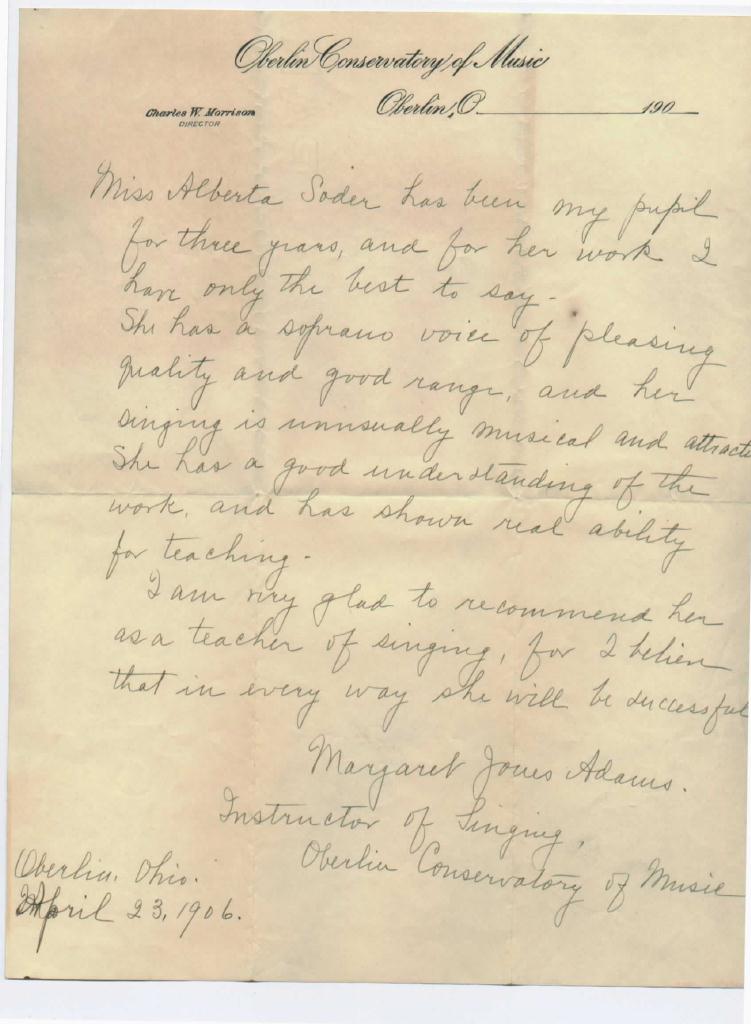 Oberlin Conservatory of Music
Oberlin, O. 190
Charles W. Morrison
DIRECTOR
Miss Alberta Soder has been my pupil
for three years, and for her work I
have only the best to say.
She has a soprano voice of pleasing
quality and good range, and her
singing is unusually musical and attracti
She has a good understanding of the
work, and has shown real ability
for teaching.
I am very glad to recommend her
as a teacher of singing, for I believe
that in every way she will be successful
Margaret Jones Adams.
Instructor of Singing,
Oberlin Conservatory of Music
Oberlin, Ohio.
April 23, 1906.